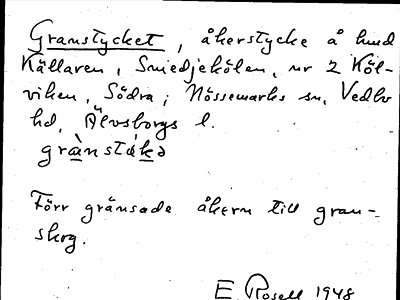 Granstycket, åkerstycke å lund
Källaren, Smedjekölen, nr 2 Köl-
viken, Södra; Nössemarks sn, Vedbo
hd, Älvsborgs l.
grànstákə
Förr gränsade åkern till gran-
skog.
E. Rosell 1948